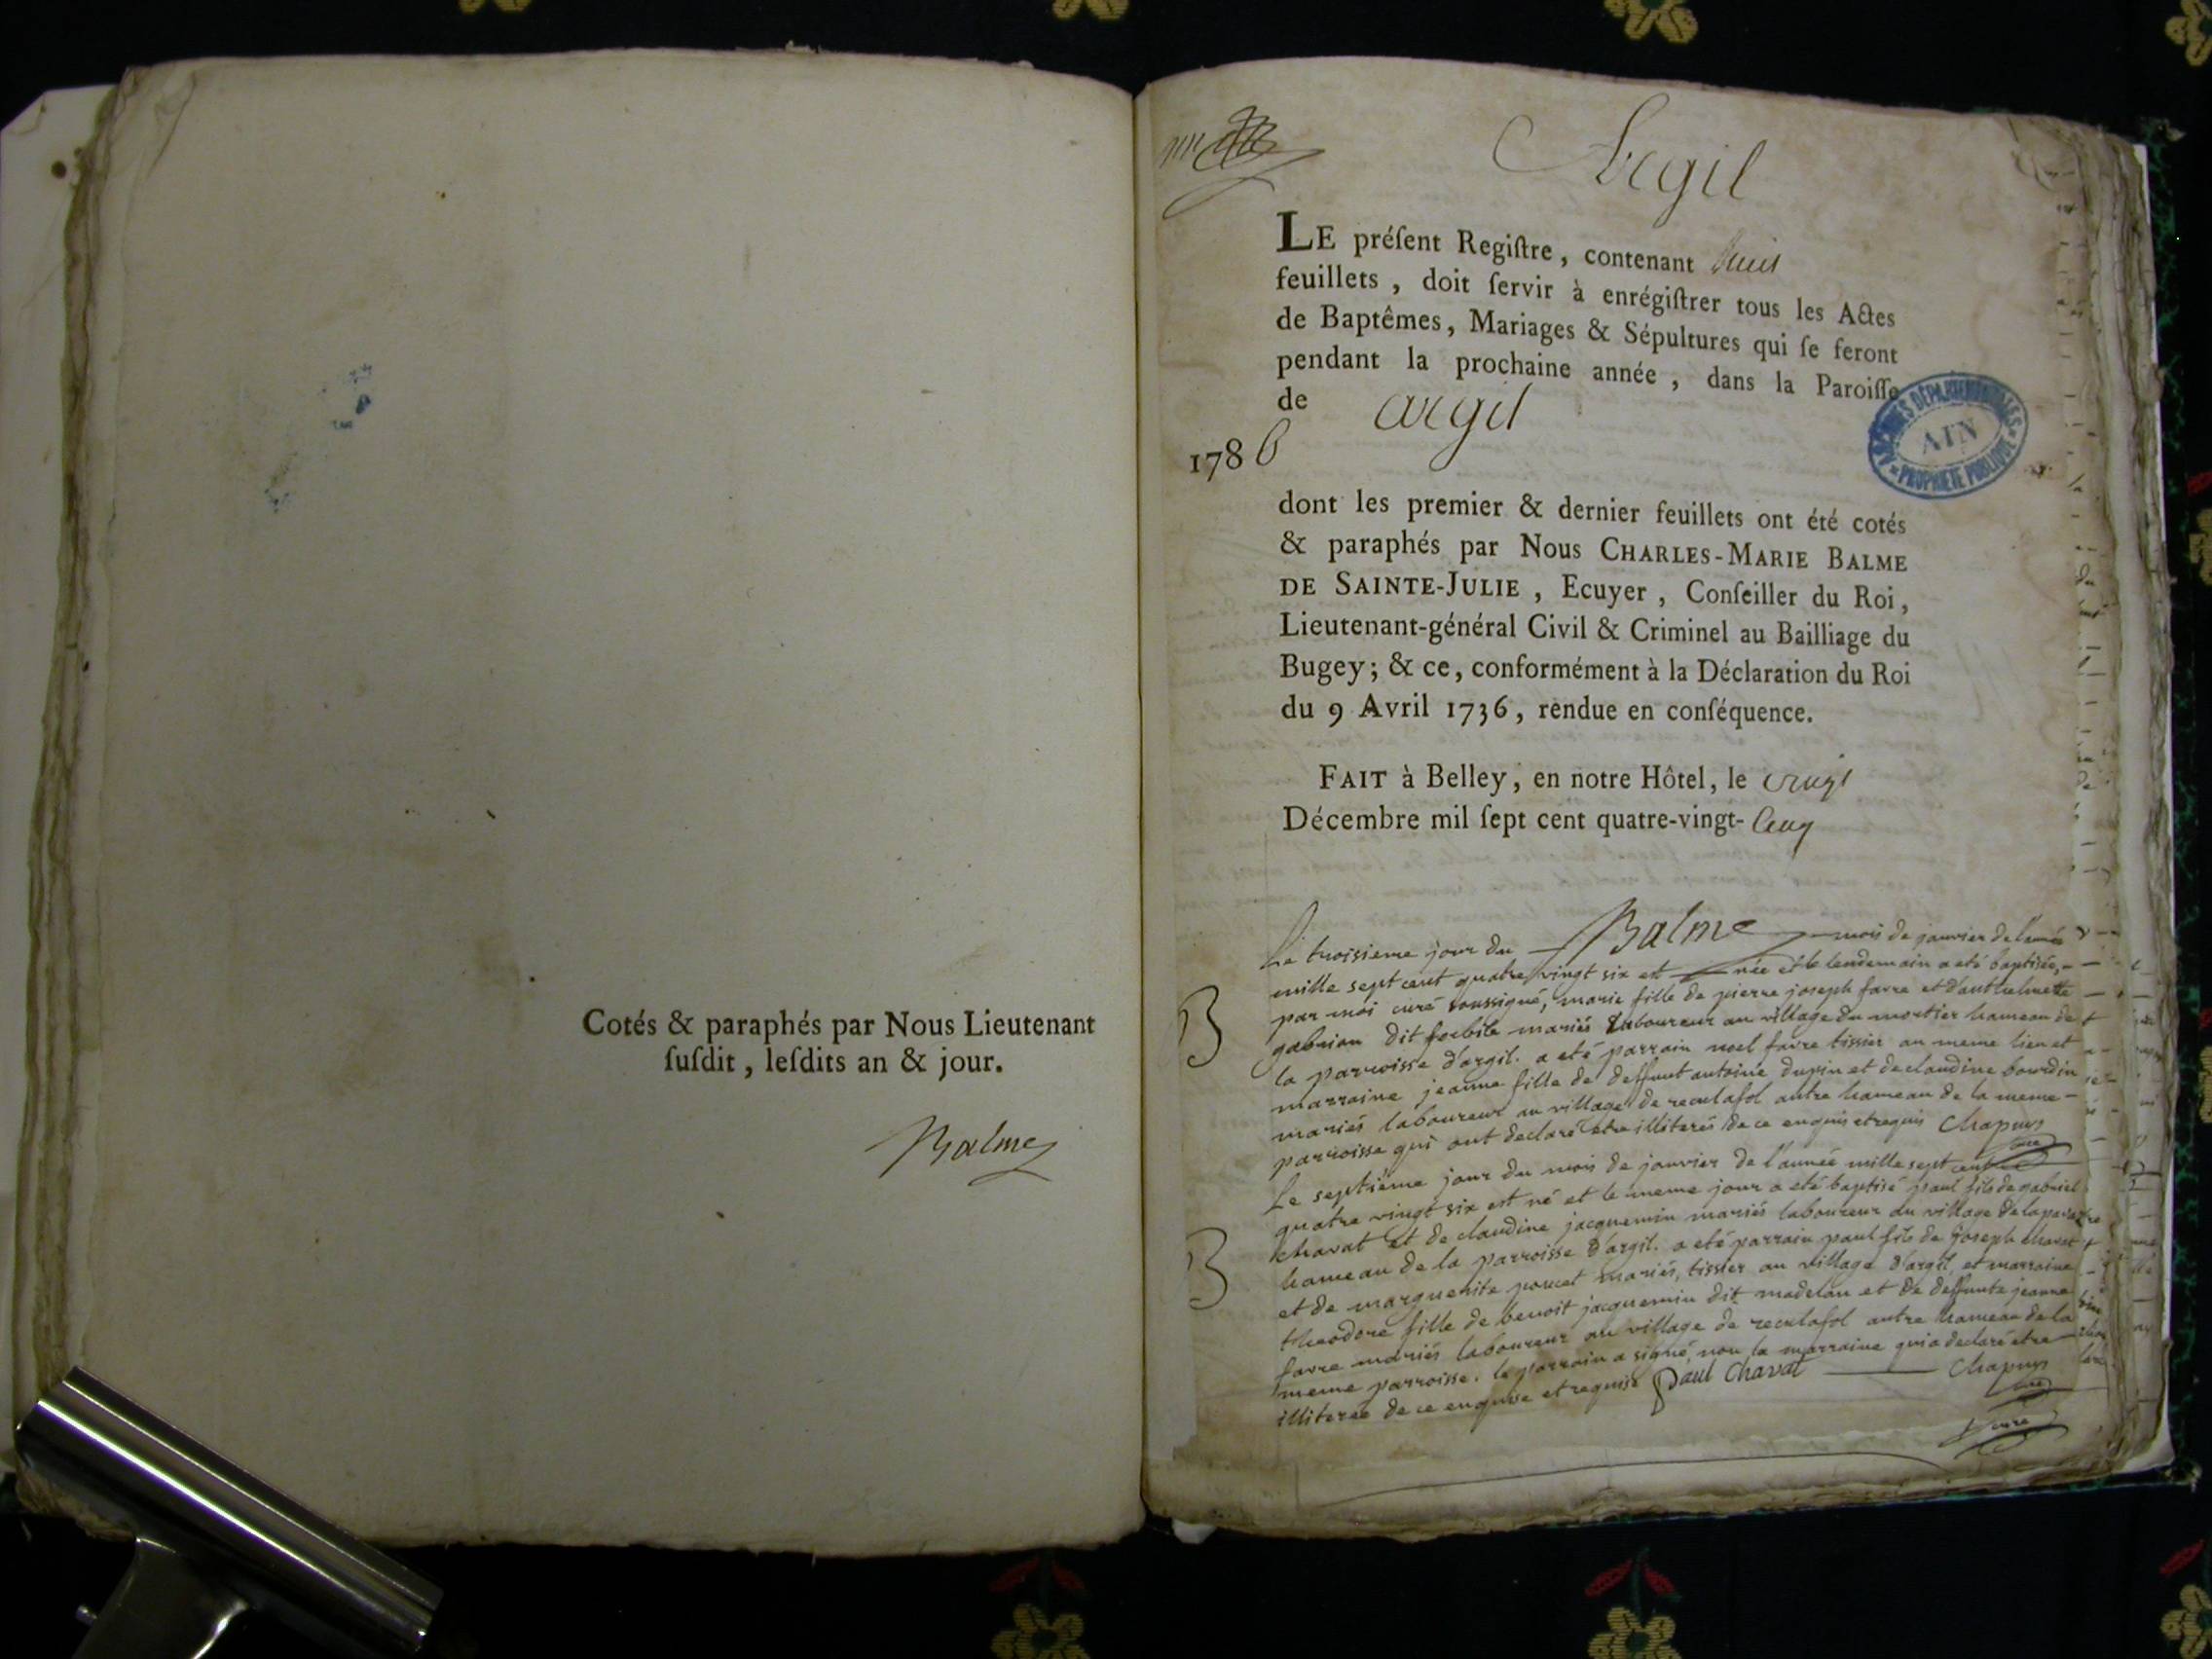 Cotés & paraphés par Nous Lieutenant
ſuſdit, leſdits an & jour.
Balme
Argil
LE préſent Regiſtre, contenant huit
feuillets, doit ſervir à enrégiſtrer tous les Actes
de Baptêmes, Mariages & Sépultures qui ſe feront
pendant la prochaine année, dans la Paroiſſe
de argil
1786
ARCHIVES DÉPARTEMENTALES
AIN
PROPRIÉTÉ PUBLIQUE
dont les premier & dernier feuillets ont été cotés
& paraphés par Nous CHARLES-MARIE BALME
DE SAINTE-JULIE, Ecuyer, Conſeiller du Roi,
Lieutenant-général Civil & Criminel au Bailliage du
Bugey; & ce, conformément à la Déclaration du Roi
du 9 Avril 1736, rendue en conſéquence.
FAIT à Belley, en notre Hôtel, le vingt
Décembre mil ſept cent quatre-vingt-Cinq
Balme
Le troisieme jour du mois de janvier de l'année
mille sept cent quatre vingt six est née et le lendemain a eté baptisée,
B
par moi curé soussigné, marie fille de pierre joseph favre et d'anthelmette
gabrian dit mariés laboureur au village du mortier hameau de
la parroisse d'argil. a eté parrain noel favre tissier au meme lieu et
marraine jeanne fille de deffunt antoine dupin et de claudine bourdin
mariés laboureur au village de reculafol autre hameau de la meme
parroisse qui ont declaré etre illiterés de ce enquis et requis Chapuys
curé
Le septiéme jour du mois de janvier de l'année mille sept cent
quatre vingt six est né et le meme jour a eté baptisé paul fils de gabriel
B
chavat et de claudine jacquemin mariés laboureur du village
hameau de la parroisse d'argil. a eté parrain paul fils de joseph chavat
et de marguerite poncet mariés, tissier au village d'argil, et marraine
theodore fille de benoit jacquemin dit madelan et de deffunte jeanne
favre mariés laboureur au village de reculafol autre hameau de la
meme parroisse. le parrain a signé, non la marraine qui a declaré etre
illiterée de ce enquise et requise Paul Chavat Chapuys
curé